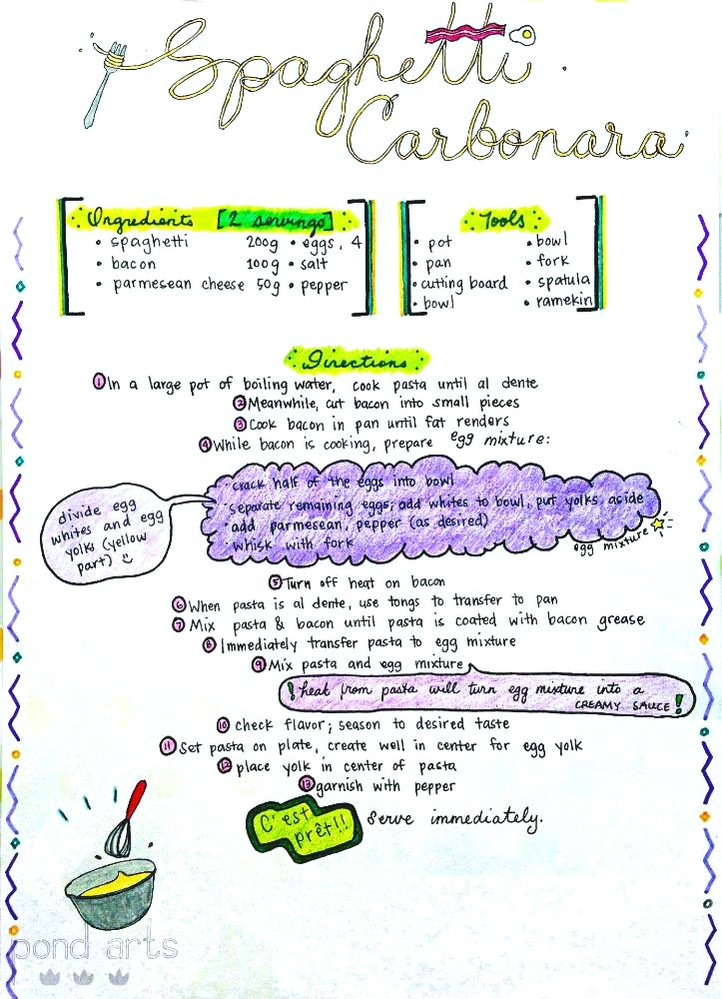 Spaghetti
Carbonara
Ingredients [2 servings]
• spaghetti 200g • eggs, 4
• bacon 100g • salt
• parmesean cheese 50g • pepper
Tools
• pot • bowl
• pan • fork
• cutting board • spatula
• bowl • ramekin
Directions
① In a large pot of boiling water, cook pasta until al dente
② Meanwhile, cut bacon into small pieces
③ Cook bacon in pan until fat renders
④ While bacon is cooking, prepare egg mixture:
• crack half of the eggs into bowl
• separate remaining eggs; add whites to bowl, put yolks aside
• add parmesean, pepper (as desired)
• whisk with fork
egg mixture
divide egg
whites and egg
yolks (yellow
part) :)
⑤ Turn off heat on bacon
⑥ When pasta is al dente, use tongs to transfer to pan
⑦ Mix pasta & bacon until pasta is coated with bacon grease
⑧ Immediately transfer pasta to egg mixture
⑨ Mix pasta and egg mixture
! heat from pasta will turn egg mixture into a
CREAMY SAUCE !
⑩ Check flavor; season to desired taste
⑪ Set pasta on plate, create well in center for egg yolk
⑫ place yolk in center of pasta
⑬ garnish with pepper
C'est
prêt!!
Serve immediately.
pond arts